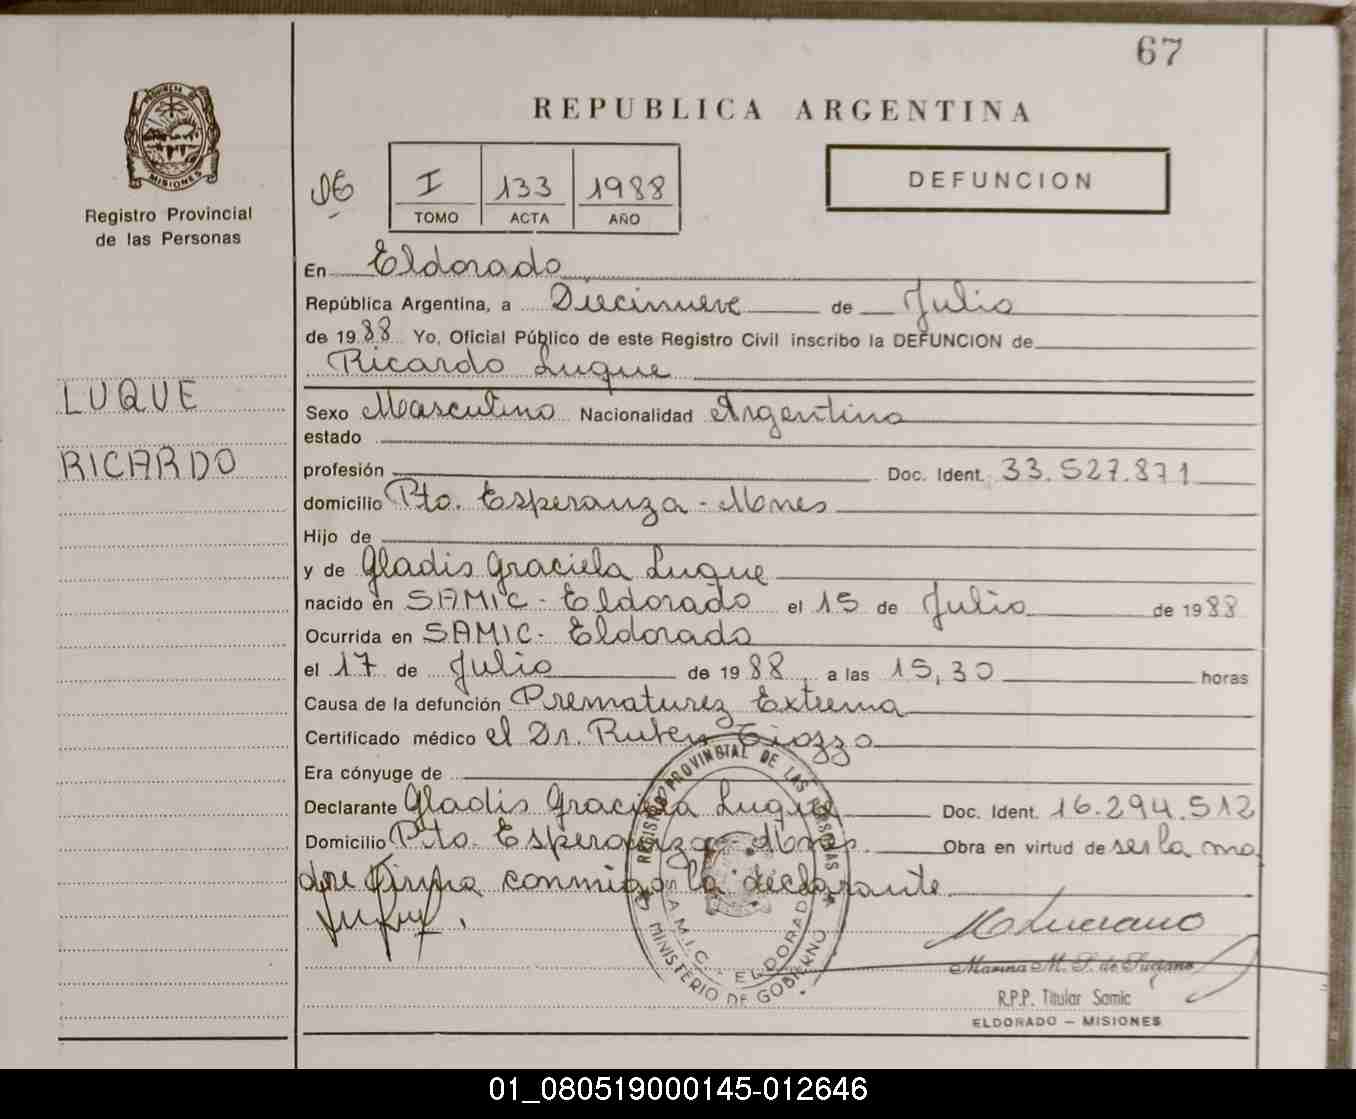 67
REPUBLICA ARGENTINA
PROVINCIA DE
MISIONES
Registro Provincial
de las Personas
I 133 1988
TOMO ACTA AÑO
DEFUNCION
LUQUE
RICARDO
En Eldorado
República Argentina, a Diecinueve de Julio
de 1988 Yo, Oficial Público de este Registro Civil inscribo la DEFUNCION de
Ricardo Luque
Sexo Masculino Nacionalidad Argentina
estado
profesión Doc. Ident. 33.527.871
domicilio Pto. Esperanza - Mnes
Hijo de
y de Gladis Graciela Luque
nacido en SAMIC - Eldorado el 15 de Julio de 1988
Ocurrida en SAMIC - Eldorado
el 17 de Julio de 1988 a las 15,30 horas
Causa de la defunción Prematurez Extrema
Certificado médico el Dr. Ruben Tiozzo
Era cónyuge de
Declarante Gladis Graciela Luque Doc. Ident. 16.294.512
Domicilio Pto. Esperanza - Mnes. Obra en virtud de ser la ma
dre Firma conmigo la declarante
REGISTRO PROVINCIAL DE LAS PERSONAS
SAMIC - ELDORADO
MINISTERIO DE GOBIERNO
Marina M. de
R.P.P. Titular Samic
ELDORADO - MISIONES
01_080519000145-012646